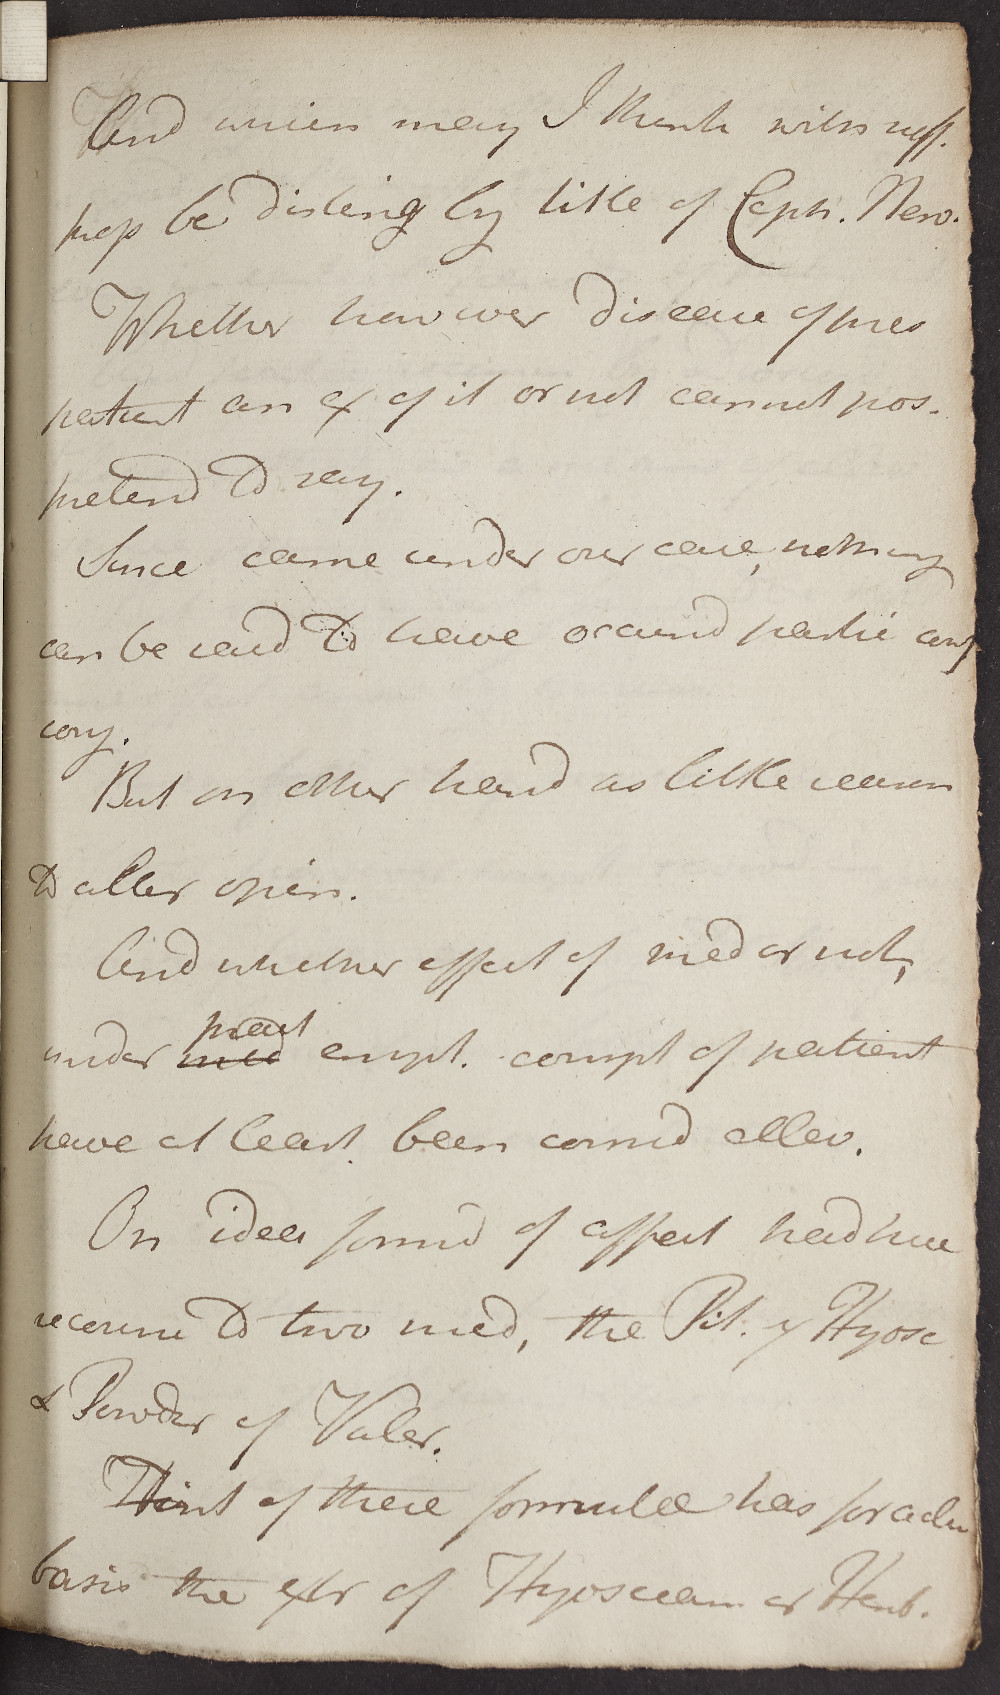 And which may I think with suff.
prop be disting by title of Ceph. Nerv.
Whether however disease of pres
patient an ex of it or not cannot pos.
pretend to say.
Since came under our care, nothing
can be said to have occurred partic
cory.
But on other hand as little reason
to alter opin.
And whether effect of med or not,
under med preset empt. compt of patient
have at least been consid allev.
On idea formd of affect had here
recourse to two med, the Pil. ex Hyosc
& Powder of Valer.
First of these formulae has for active
basis the extr of Hyosciam or Henb.